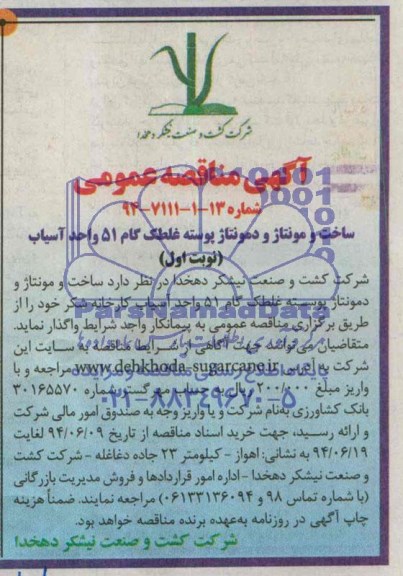 شرکت کشت و صنعت نیشکر دهخدا
آگهی مناقصه عمومی
شماره ۱۳-۱-۷۱۱۱-۹۴
ساخت و مونتاژ و دمونتاژ پوسته غلطک گام ۵۱ واحد آسیاب
(نوبت اول)
شرکت کشت و صنعت نیشکر دهخدا در نظر دارد ساخت و مونتاژ و
دمونتاژ پوسته غلطک گام ۵۱ واحد آسیاب کارخانه شکر خود را از
طریق برگزاری مناقصه عمومی به پیمانکار واجد شرایط واگذار نماید.
متقاضیان می‌توانند جهت آگاهی از شرایط مناقصه به سایت این
شرکت به آدرس www.dehkhoda-sugarcane.ir مراجعه و با
واریز مبلغ ۲۰۰/۰۰۰ ریال به حساب مهر گستر شماره ۳۰۱۶۵۵۷۰
بانک کشاورزی به‌نام شرکت و یا واریز وجه به صندوق امور مالی شرکت
و ارائه رسید، جهت خرید اسناد مناقصه از تاریخ ۹۴/۰۶/۰۹ لغایت
۹۴/۰۶/۱۹ به نشانی: اهواز - کیلومتر ۲۳ جاده دغاغله - شرکت کشت
و صنعت نیشکر دهخدا - اداره امور قراردادها و فروش مدیریت بازرگانی
(با شماره تماس ۹۸ و ۰۶۱۳۳۱۳۶۰۹۴) مراجعه نمایند. ضمناً هزینه
چاپ آگهی در روزنامه به‌عهده برنده مناقصه خواهد بود.
شرکت کشت و صنعت نیشکر دهخدا
ParsNamadData
۰۲۱-۸۸۳۴۹۶۷۰-۵